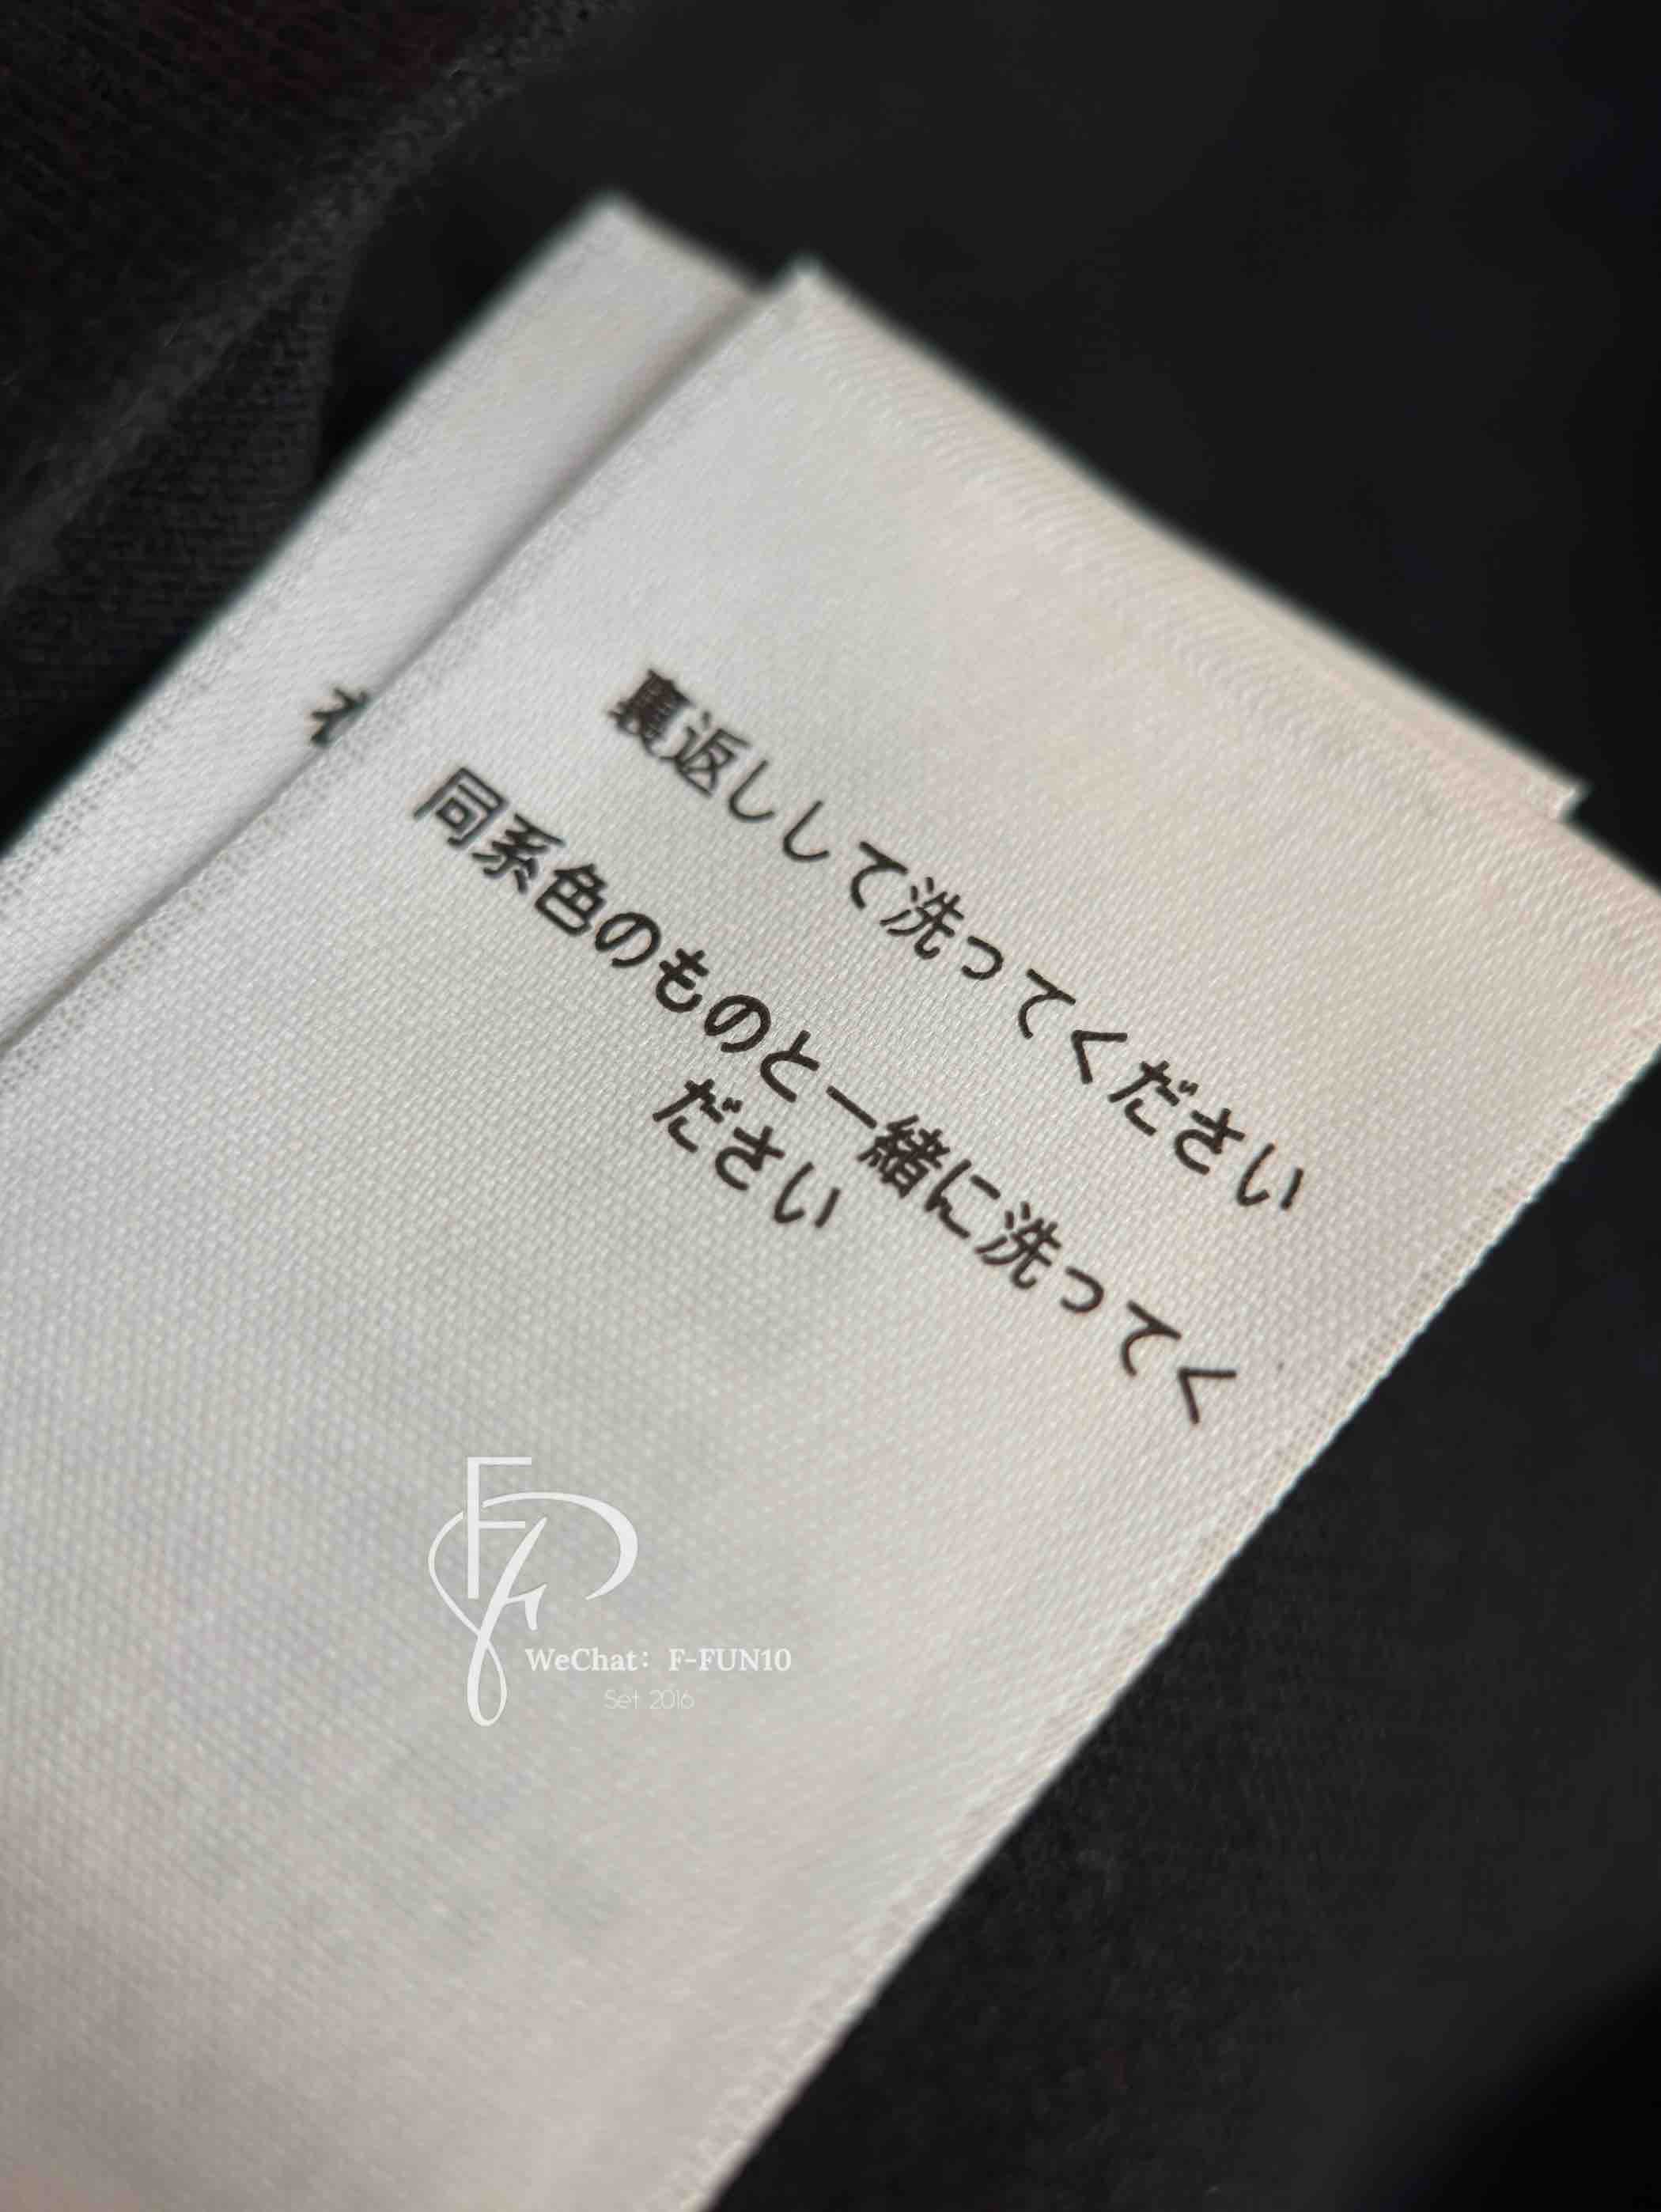 裏返しして洗ってください
同系色のものと一緒に洗ってく
ださい
WeChat：F-FUN10
Set 2016